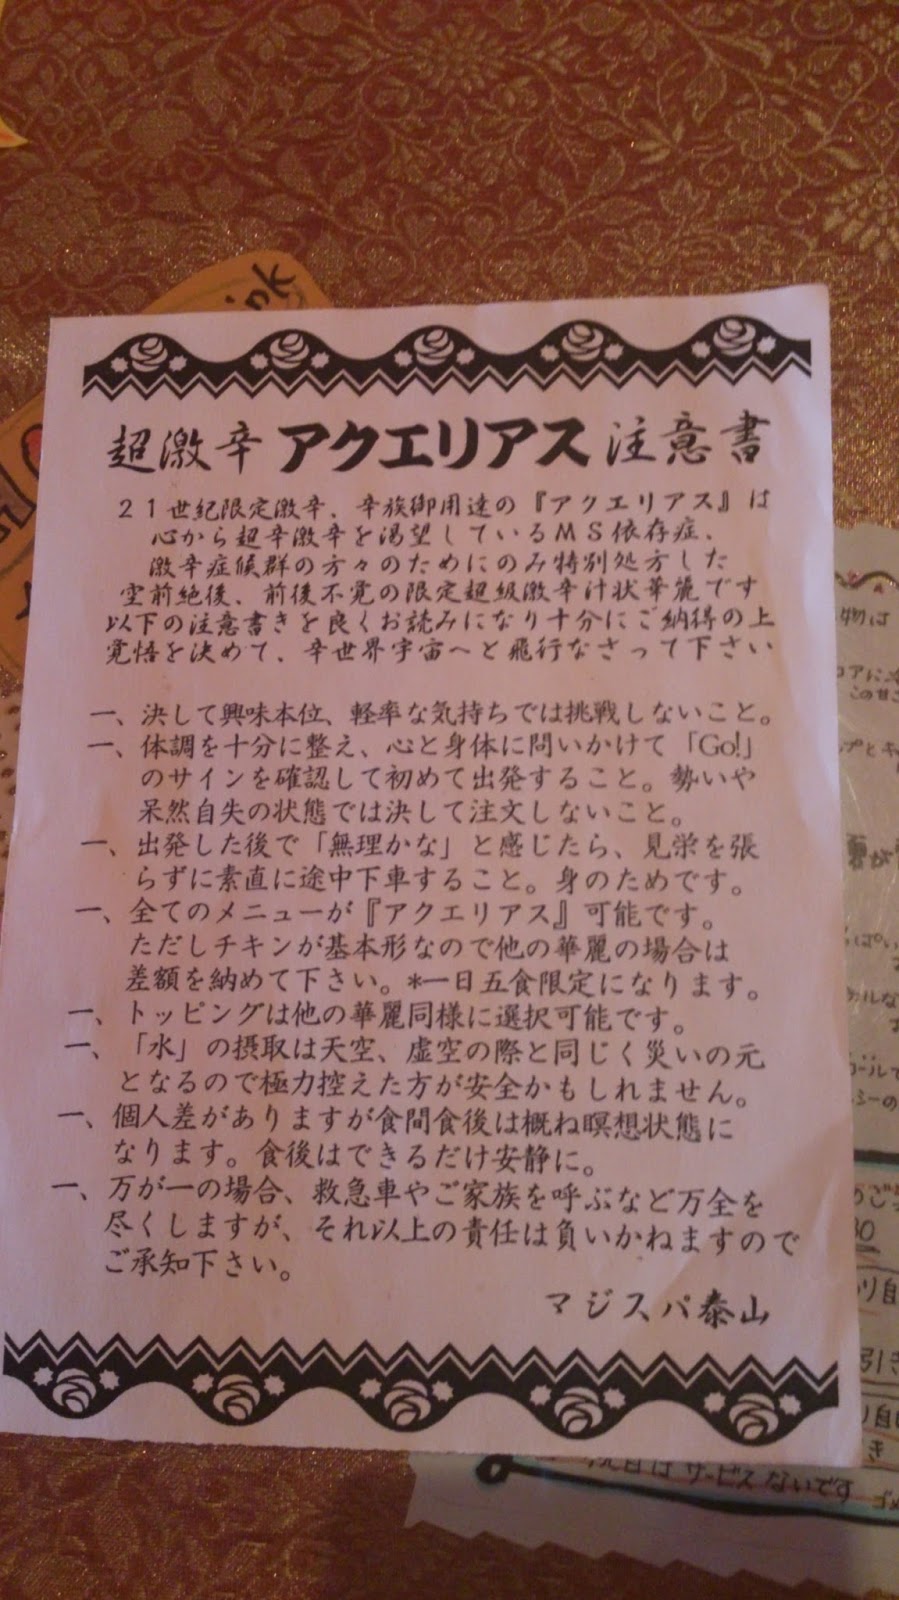 超激辛 アクエリアス 注意書
21世紀限定激辛、辛族御用達の『アクエリアス』は
心から超辛激辛を渇望しているMS依存症、
激辛症候群の方々のためにのみ特別処方した
空前絶後、前後不覚の限定超級激辛汁状華麗です
以下の注意書きを良くお読みになり十分にご納得の上
覚悟を決めて、辛世界宇宙へと飛行なさって下さい
一、決して興味本位、軽率な気持ちでは挑戦しないこと。
一、体調を十分に整え、心と身体に問いかけて「Go!」
のサインを確認して初めて出発すること。勢いや
呆然自失の状態では決して注文しないこと。
一、出発した後で「無理かな」と感じたら、見栄を張
らずに素直に途中下車すること。身のためです。
一、全てのメニューが『アクエリアス』可能です。
ただしチキンが基本形なので他の華麗の場合は
差額を納めて下さい。*一日五食限定になります。
一、トッピングは他の華麗同様に選択可能です。
一、「水」の摂取は天空、虚空の際と同じく災いの元
となるので極力控えた方が安全かもしれません。
一、個人差がありますが食間食後は概ね瞑想状態に
なります。食後はできるだけ安静に。
一、万が一の場合、救急車やご家族を呼ぶなど万全を
尽くしますが、それ以上の責任は負いかねますので
ご承知下さい。
マジスパ泰山
物は
この甘さ
プとキ
引き
き
日は サービス ないです